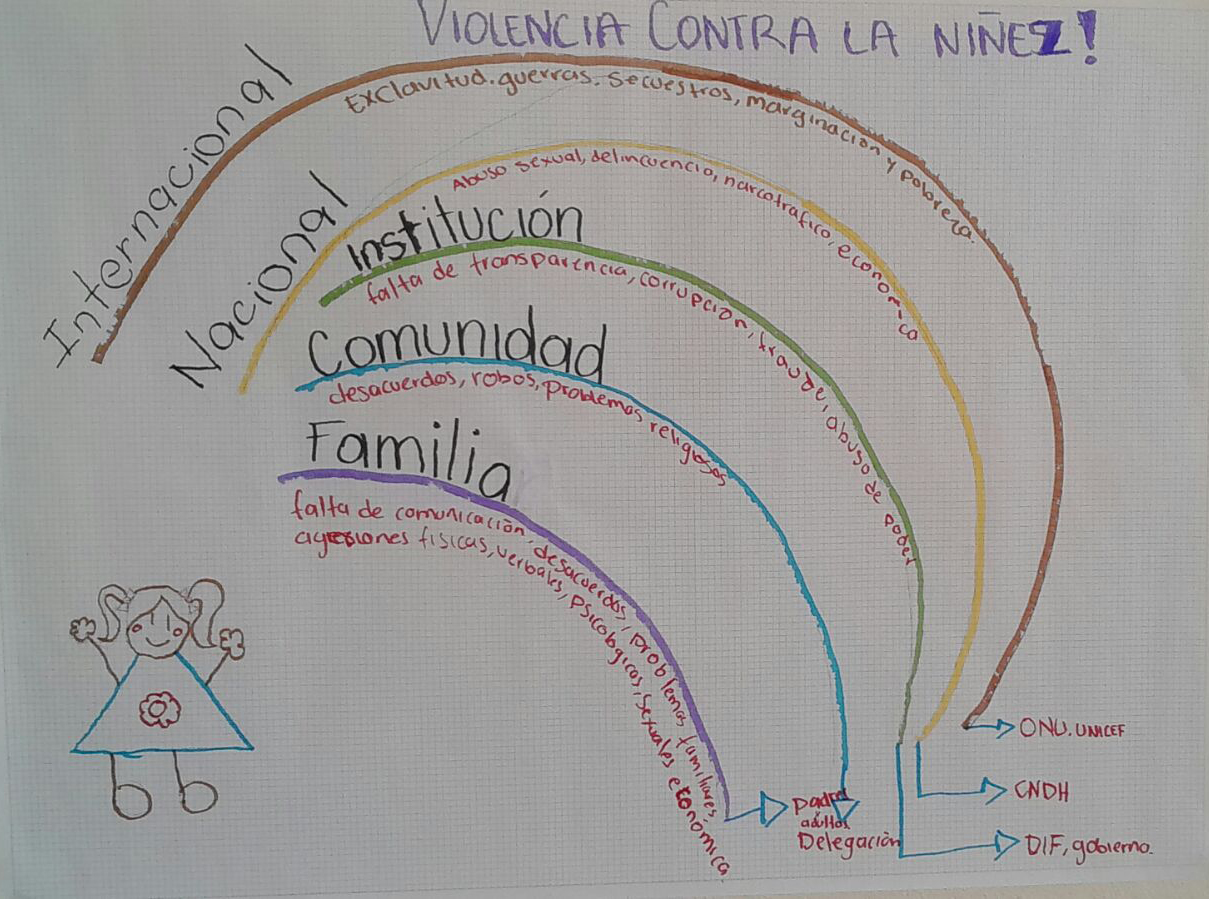 VIOLENCIA CONTRA LA NIÑEZ!
Internacional
Exclavitud. guerras. secuestros, marginación y pobreza.
Nacional
Abuso sexual, delincuencia, narcotrafico, económica
Institución
falta de transparencia, corrupción, fraude, abuso de poder
Comunidad
desacuerdos, robos, problemas religiosos
Familia
falta de comunicación, desacuerdos, problemas familiares,
agresiones fisicas, verbales, psicologicas, sexuales económica
ONU. UNICEF
CNDH
padres
adultos
Delegación
DIF, gobierno.